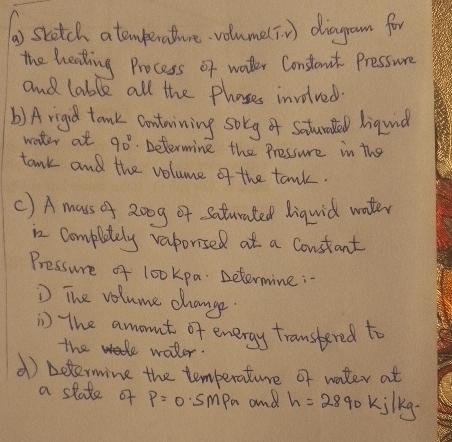 a) Sketch a temperature-volume(T.v) diagram for
the heating Process of water Constant Pressure
and lable all the phases involved.
b) A rigid tank Containing 50kg of Saturated liquid
water at 90°. Determine the Pressure in the
tank and the volume of the tank.
c) A mass of 200g of Saturated liquid water
is Completely vaporised at a Constant
Pressure of 100kpa. Determine :-
i) The volume change.
ii) The amount of energy transfered to
the water.
d) Determine the temperature of water at
a state of P=0.5MPa and h=2890 kj/kg.